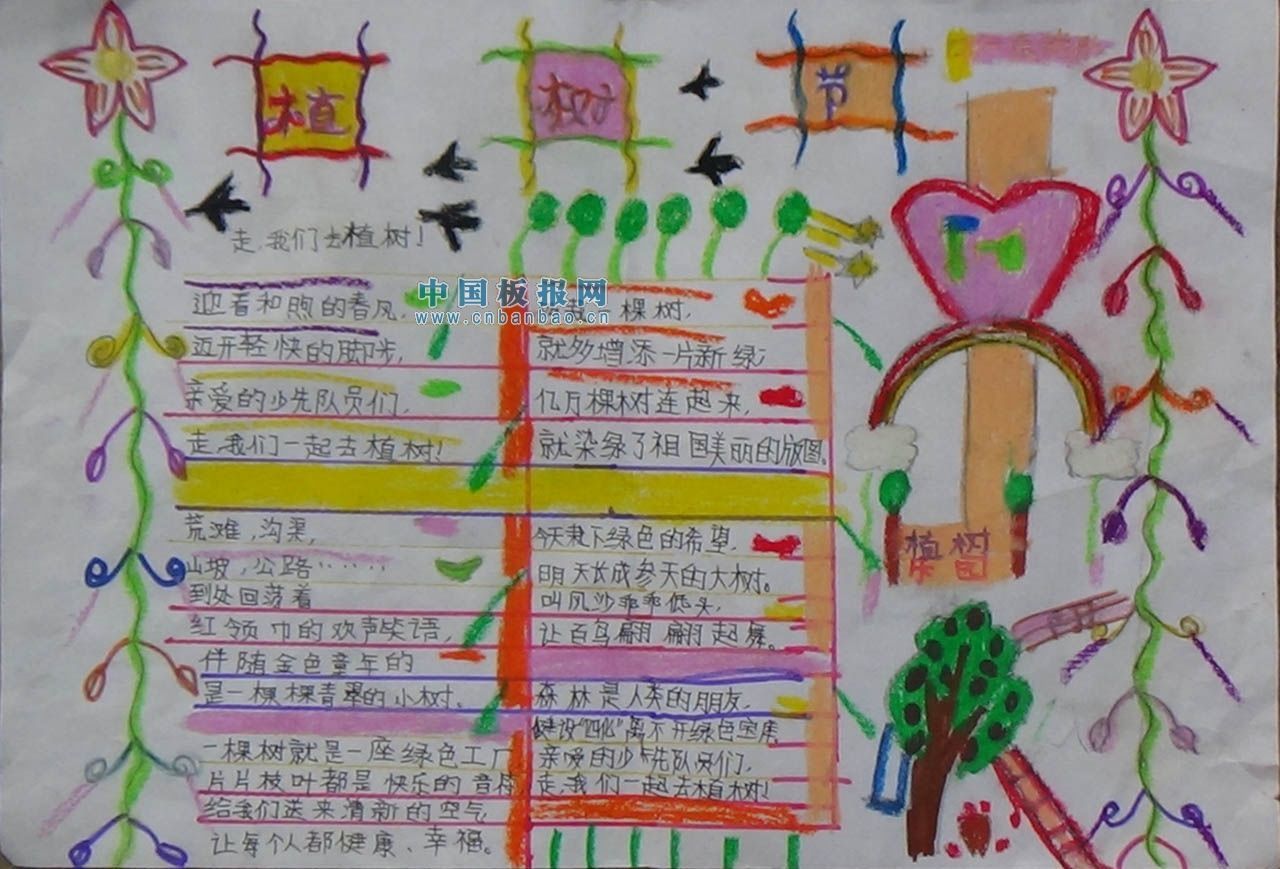 植 树 节
走,我们去植树!
迎着和煦的春风,
迈开轻快的脚步,
亲爱的少先队员们,
走,我们一起去植树!
荒滩,沟渠,
山坡,公路……
到处回荡着
红领巾的欢声笑语,
伴随金色童年的
是一棵棵青翠的小树。
一棵树就是一座绿色工厂
片片枝叶都是快乐的音符
给我们送来清新的空气
让每个人都健康、幸福。
中国板报网
www.cnbanbao.cn
一棵树,
就多增添一片新绿;
亿万棵树连起来,
就染绿了祖国美丽的版图。
今天栽下绿色的希望,
明天长成参天的大树。
叫风沙乖乖低头,
让百鸟翩翩起舞。
森林是人类的朋友,
建设"四化"离不开绿色宝库
亲爱的少先队员们,
走,我们一起去植树!
植树
乐园